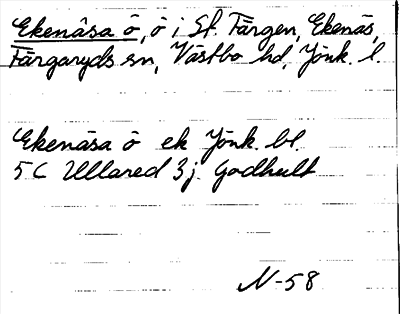 Ekenäsa ö, ö i St. Färgen, Ekenäs,
Färgaryds sn, Västbo hd, Jönk. l.
Ekenäsa ö ek Jönk. bl.
5 C Ullared 3 j Godhult
N-58